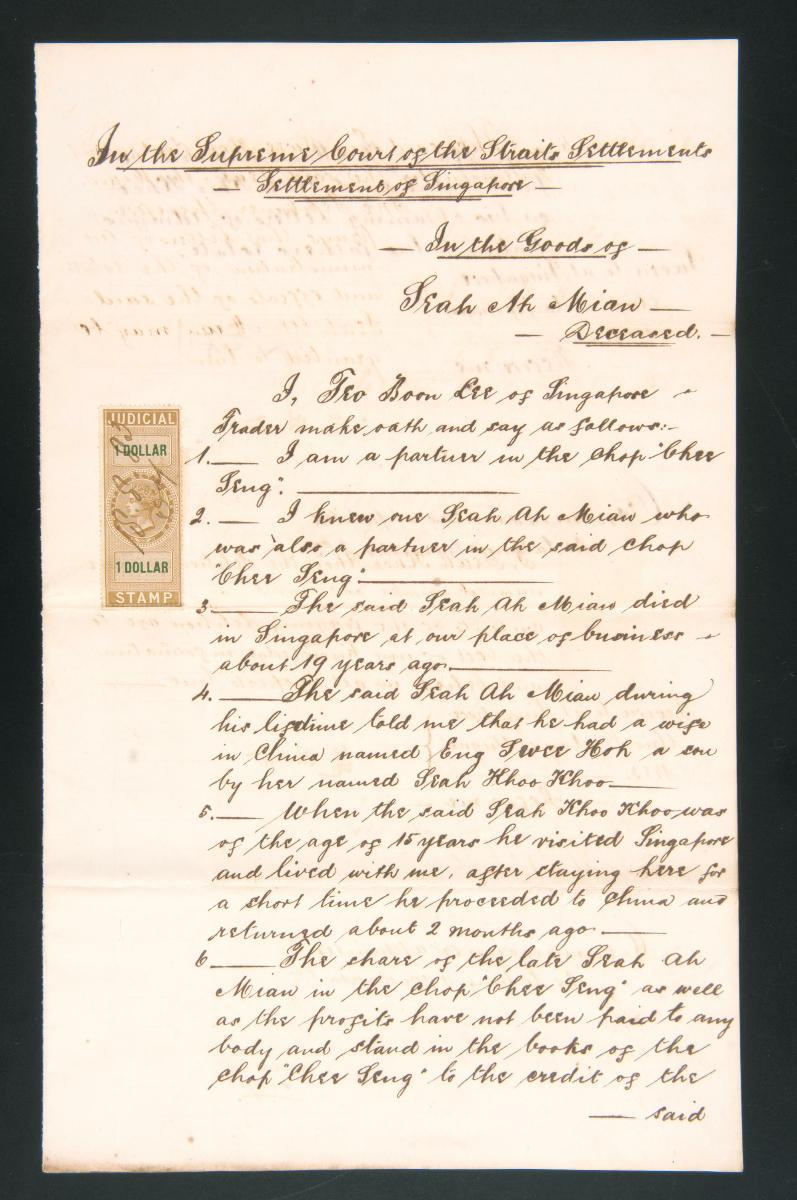 In the Supreme Court of the Straits Settlements
— Settlement of Singapore —
— In the Goods of —
Seah Ah Mian —
— Deceased. —
I, Teo Boon Lee of Singapore
Trader make oath and say as follows:-
1. — I am a partner in the chop "Chee
Seng". —
2. — I knew one Seah Ah Mian who
was also a partner in the said chop
"Chee Seng" —
3 — The said Seah Ah Mian died
in Singapore at our place of business
about 19 years ago. —
4. — The said Seah Ah Mian during
his lifetime told me that he had a wife
in China named Eng Swee Hoh a son
by her named Seah Khoo Khoo —
5. — When the said Seah Khoo Khoo was
of the age of 15 years he visited Singapore
and lived with me, after staying here for
a short time he proceeded to China and
returned about 2 months ago —
6 — The share of the late Seah Ah
Mian in the chop "Chee Seng" as well
as the profits have not been paid to any
body and stand in the books of the
chop "Chee Seng" to the credit of the
— said
JUDICIAL
1 DOLLAR
1 DOLLAR
STAMP